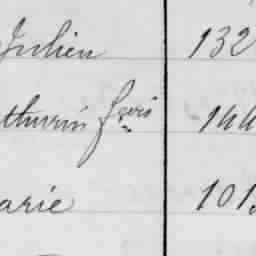 Julien 132
thurin frcis 144
arie 101